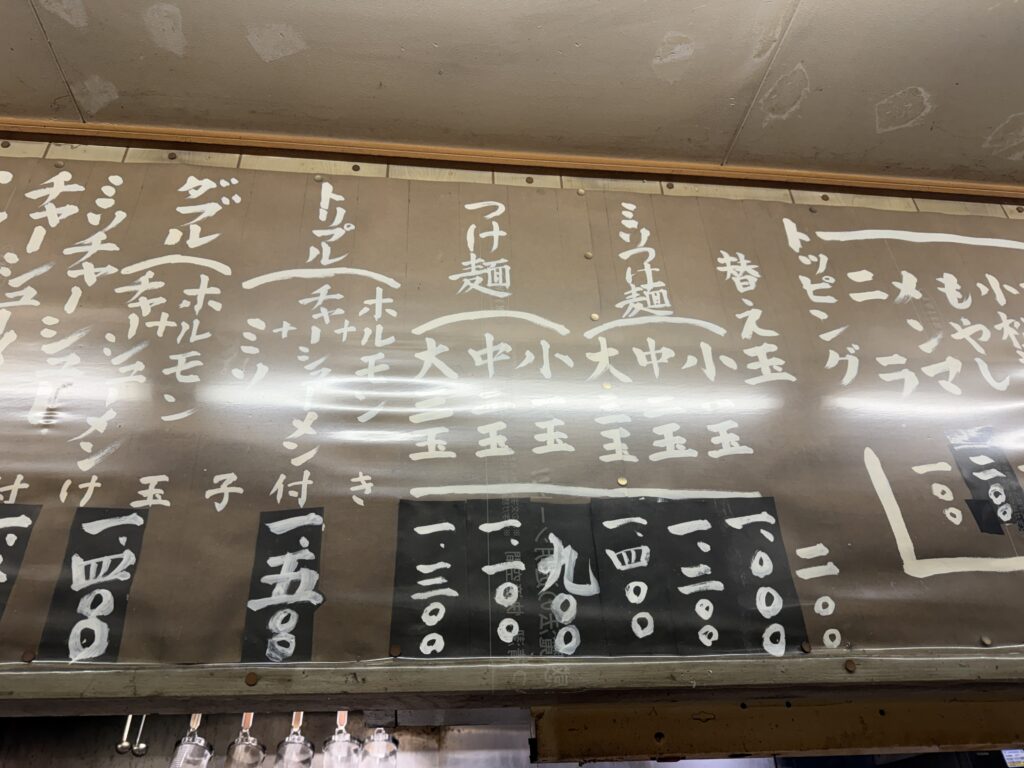 もやし
メンマ
ニラ
トッピング
二〇〇
一〇〇
替え玉
二〇〇
ミソつけ麺
小一玉
一、〇〇〇
中二玉
一、二〇〇
大三玉
一、四〇〇
つけ麺
小一玉
九〇〇
中二玉
一、一〇〇
大三玉
一、三〇〇
トリプル
ホルモン
+
チャーシューメン
+
ミソ
一、五〇〇
ダブル
ホルモン
+
チャーシューメン
ミソチャーシューメン
一、四〇〇
付け玉子付き